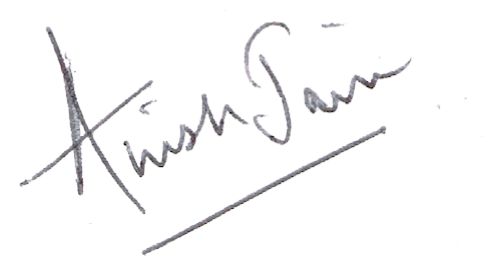 Anish Jain